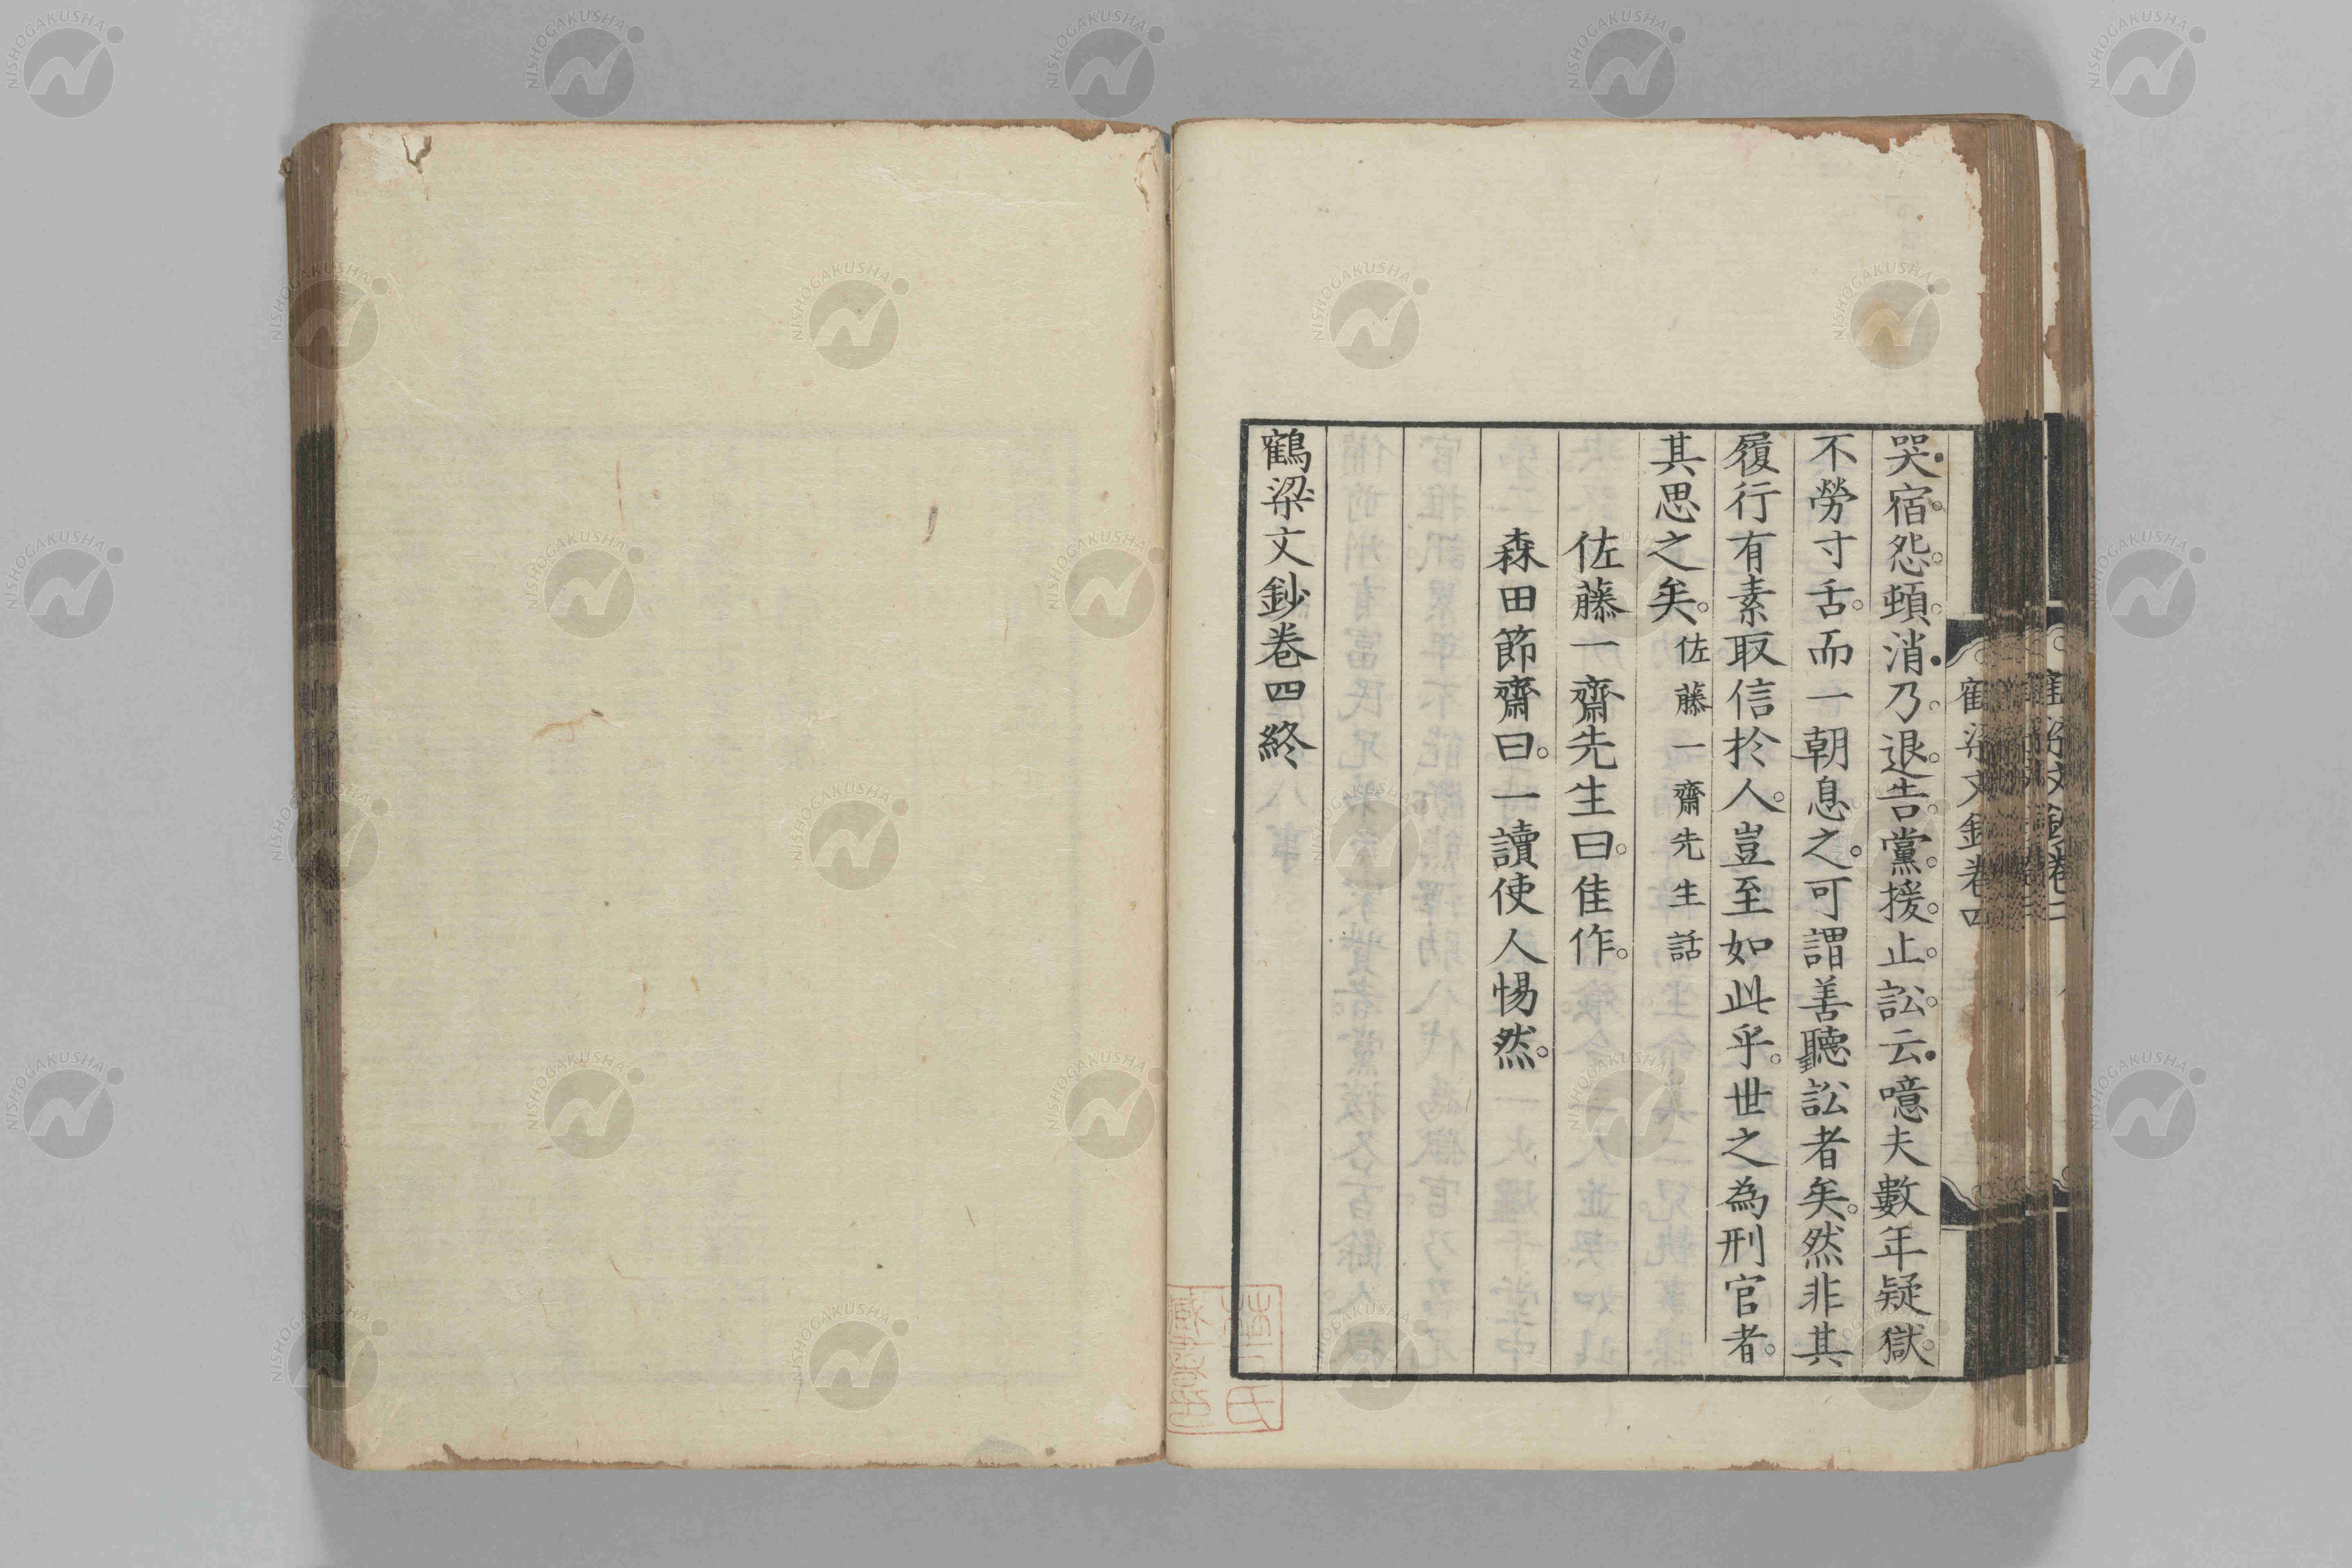 哭宿怨頓消乃退告黨援止訟云噫夫數年疑獄
不勞寸舌而一朝息之可謂善聽訟者矣然非其
履行有素取信於人豈至如此乎世之為刑官者
其思之矣佐藤一齋先生話
佐藤一齋先生曰佳作
森田節齋曰一讀使人惕然
鶴梁文鈔卷四終
鶴梁文鈔卷四
NISHOGAKUSHA